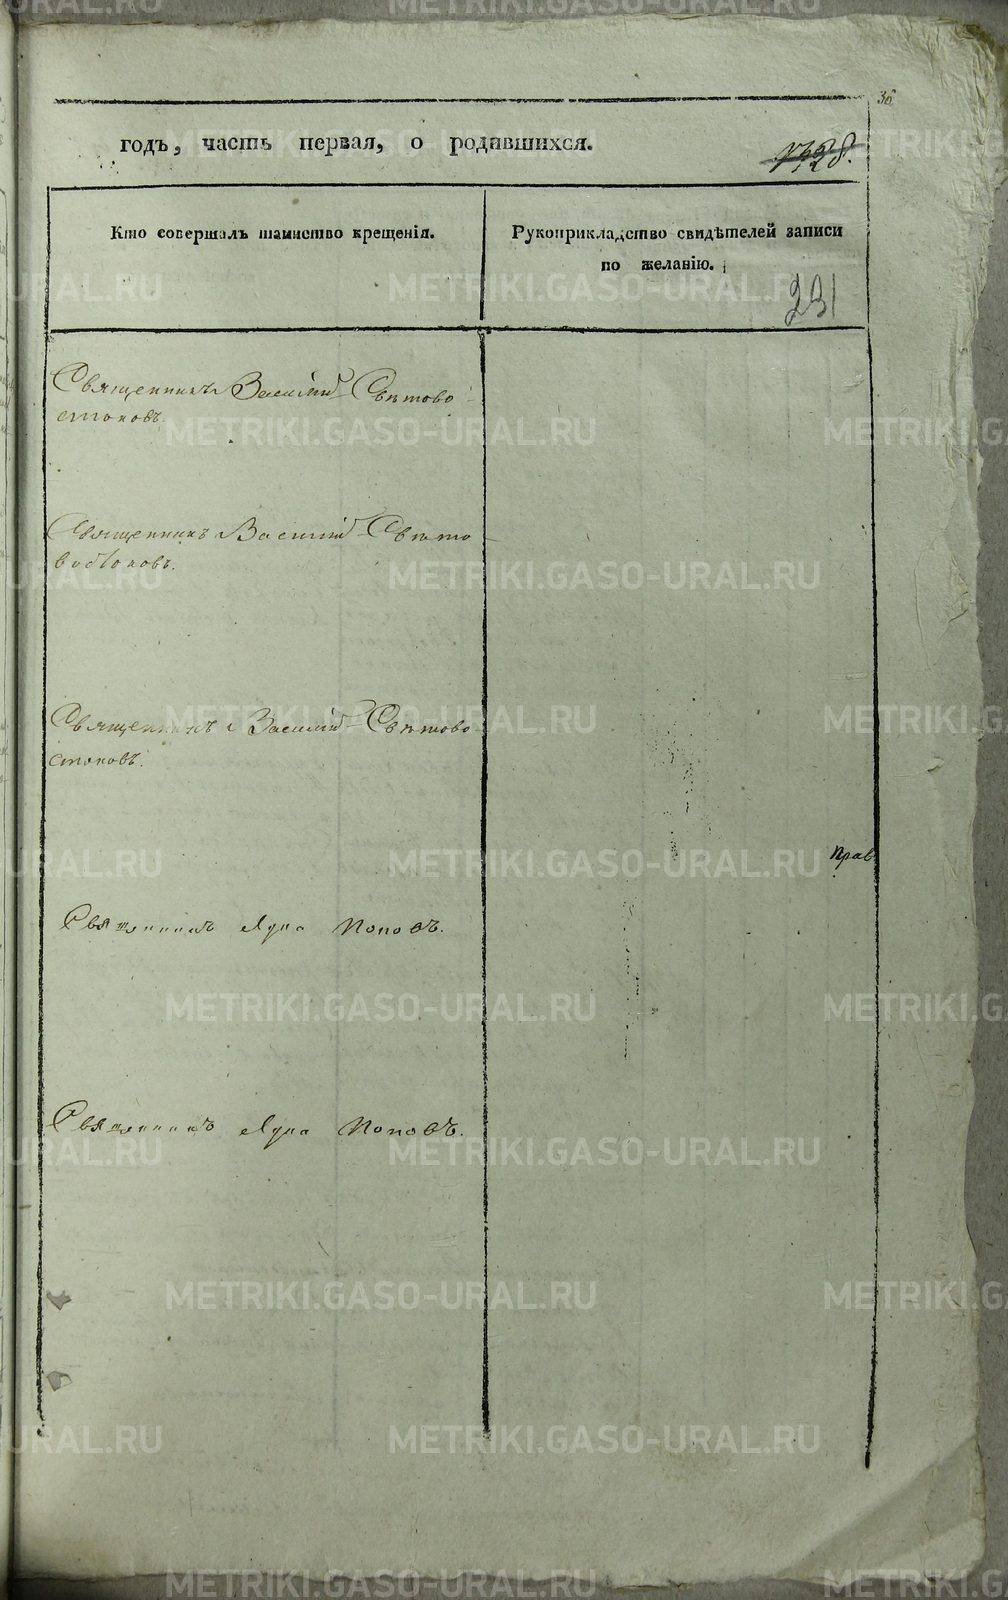 36
годъ, часть первая, о родившихся.
Кто совершалъ таинство крещенія.
Рукоприкладство свидѣтелей записи
по желанію.
231
Священникъ Василій Свѣтово
стоковъ.
Священникъ Василій Свѣто
востоковъ.
Священникъ Василій Свѣтово
стоковъ.
Прав
Священникъ Лука Поповъ.
Священникъ Лука Поповъ.
METRIKI.GASO-URAL.RU